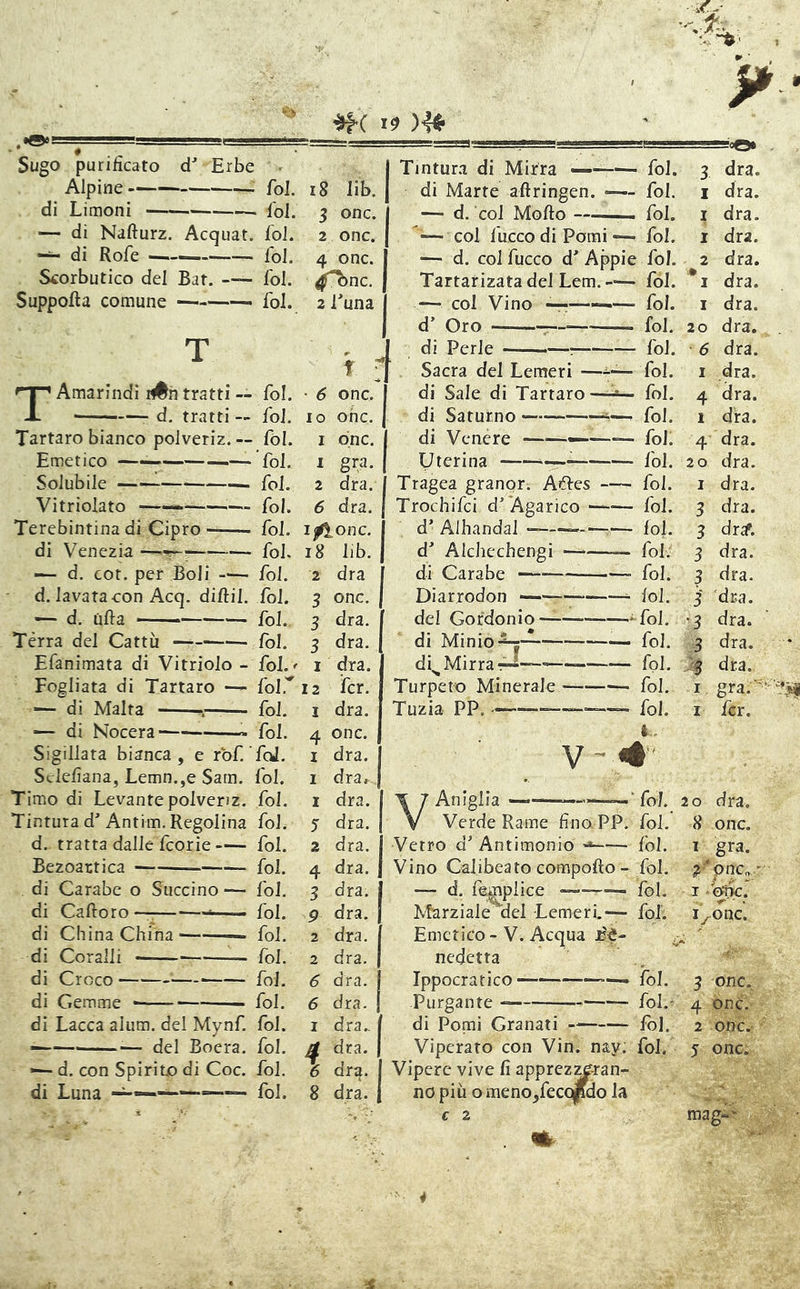 ( 19 )
Sugo purificato d' Erbe
Alpine —— fol. 18 lib.
di Limoni —— fol. 3 onc.
— di Nasturz. Acquat. sol. 2 onc.
— di Rose —— sol. 4 onc.
Scorbutico del Bat. — sol. 4 onc.
Supposta comune —— sol. 2 l'una
T
TAmarindi non tratti — sol. 6 onc.
—— d. tratti — sol. 10 onc.
Tartaro bianco polveriz. — sol. 1 onc.
Emetico —— sol. 1 gra.
Solubile —— sol. 2 dra.
Vitriolato —— sol. 6 dra.
Terebintina di Cipro —— sol. onc.
di Venezia —— sol. 18 lib.
— d. cot. per Boli — sol. 2 dra
d. lavata con Acq. distil. sol. 3 onc.
— d. usta —— sol. 3 dra.
Terra del Cattù —— sol. 3 dra.
Esanimata di Vitriolo - sol. 1 dra.
Fogliata di Tartaro — sol. 12 scr.
— di Malta —— sol. 1 dra.
— di Nocera —— sol. 4 onc.
Sigillata bianca, e ros. sol. 1 dra.
Selesiana, Lemn., e Sam. sol. 1 dra.
Timo di Levante polveriz. sol. 1 dra.
Tintura d' Antim. Regolina sol. 5 dra.
d. tratta dalle scorie — sol. 2 dra.
Bezoartica —— sol. 4 dra.
di Carabe o Succino — sol. 3 dra.
di Castoro —— sol. 9 dra.
di China China —— sol. 2 dra.
di Coralli —— sol. 2 dra.
di Croco —— sol. 6 dra.
di Gemme —— sol. 6 dra.
di Lacca alum. del Myns. sol. 1 dra.
—— del Boera. sol. 4 dra.
— d. con Spirito di Coc. sol. 6 dra.
di Luna —— sol. 8 dra.
Tintura di Mirra —— sol. 3 dra.
di Marte astringen. — sol. 1 dra.
— d. col Mosto —— sol. 1 dra.
— col succo di Pomi — sol. 1 dra.
— d. col succo d' Appie sol. 2 dra.
Tartarizata del Lem. — sol. 1 dra.
— col Vino —— sol. 1 dra.
d' Oro —— sol. 20 dra.
di Perle —— sol. 6 dra.
Sacra del Lemeri —— sol. 1 dra.
di Sale di Tartaro —— sol. 4 dra.
di Saturno —— sol. 1 dra.
di Venere —— sol. 4 dra.
Uterina —— sol. 20 dra.
Tragea granor. Actes — sol. 1 dra.
Trochisci d' Agarico —— sol. 3 dra.
d' Alhandal —— sol. 3 dra.
d' Alchechengi —— sol. 3 dra.
di Carabe —— sol. 3 dra.
Diarrodon —— sol. 3 dra.
del Gordonio —— sol. 3 dra.
di Minio —— sol. 3 dra.
di Mirra —— sol. 3 dra.
Turpeto Minerale —— sol. 1 gra.
Tuzia PP. —— sol. 1 scr.
V
VAniglia —— sol. 20 dra.
Verde Rame fino PP. sol. 8 onc.
Vetro d' Antimonio —— sol. 1 gra.
Vino Calibeato composto - sol. 2 onc.
— d. semplice —— sol. 1 onc.
Marziale del Lemeri. — sol. 1 onc.
Emetico - V. Acqua Be-
nedetta
Ippocratico —— sol. 3 onc.
Purgante —— sol. 4 onc.
di Pomi Granati —— sol. 2 onc.
Viperato con Vin. nav. sol. 5 onc.
Vipere vive si apprezzeran-
no più o meno, secondo la
c 2 mag-